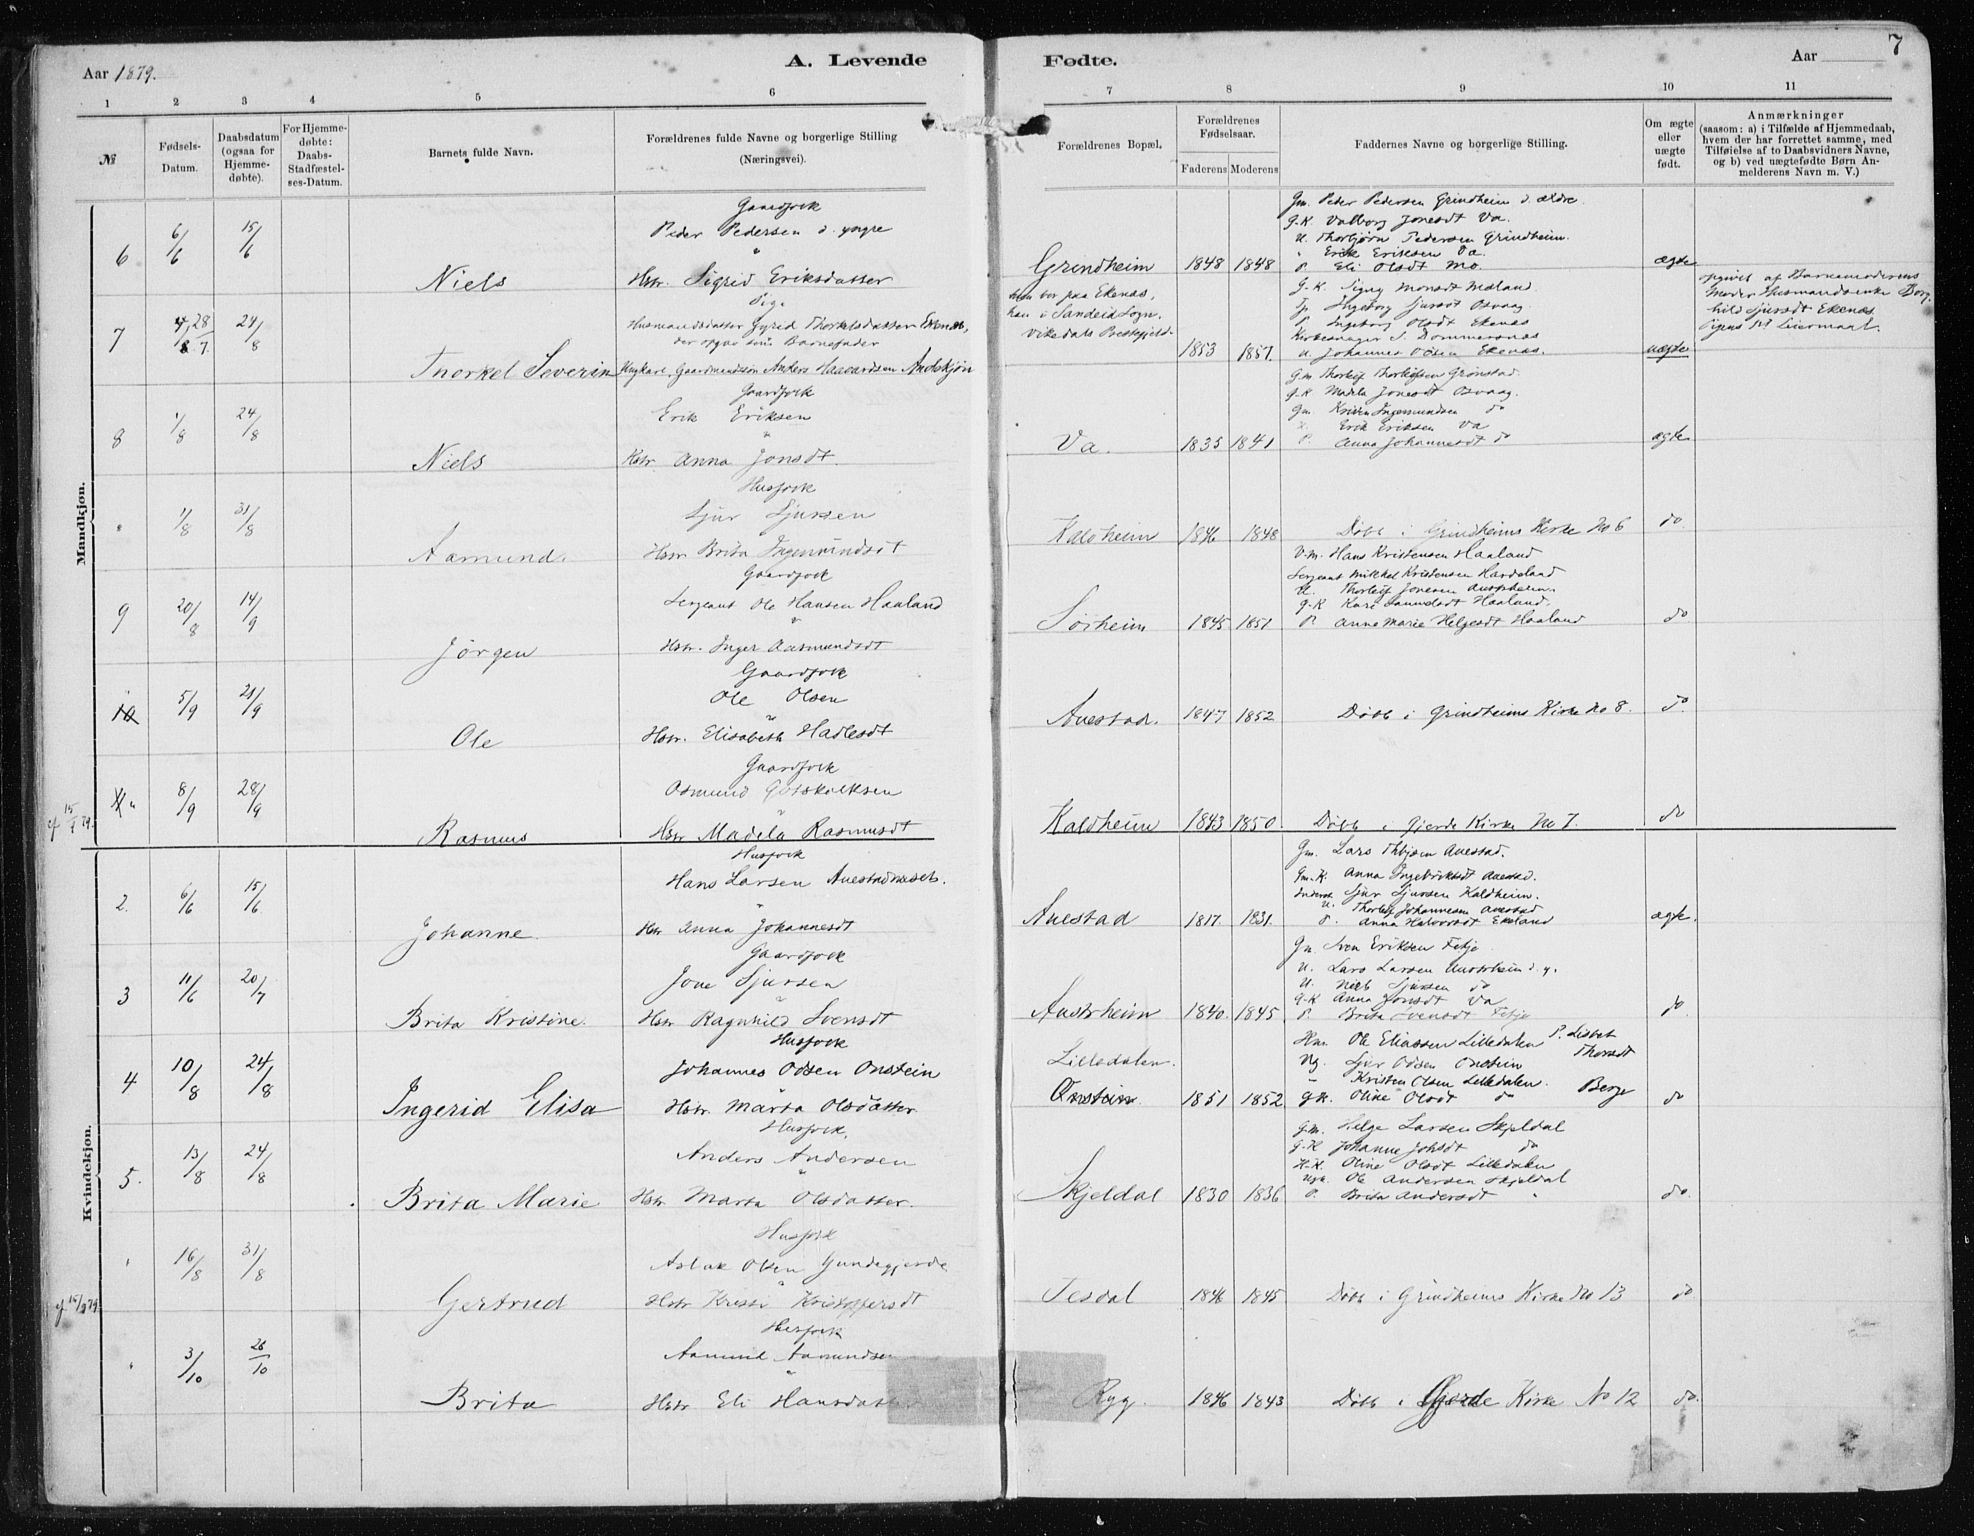 Aar 1879.
A. Levende
Fødte.
Aar
7
1 2 3 4 5 6 7 8 9 10 11
№
Fødsels-Datum.
Daabsdatum (ogsaa for Hjemme-døbte).
For Hjemme-døbte: Daabs-Stadfæstel-ses-Datum.
Barnets fulde Navn.
Forældrenes fulde Navne og borgerlige Stilling
(Næringsvei).
Forældrenes Bopæl.
Forældrenes Fødselsaar.
Faderens Moderens
Faddernes Navne og borgerlige Stilling.
Om ægte eller uægte født.
Anmærkninger
(saasom: a) i Tilfælde af Hjemmedaab, hvem der har forrettet samme, med Tilføielse af to Daabsvidners Navne, og b) ved uægtefødte Børn Anmelderens Navn m. V.)
Mandkjøn.
6 6/6 15/6 Niels
Gaardfolk
Peder Pedersen d. yngre
"
Hstr. Sigrid Eriksdatter
Grindheim 1848 1848
Gm. Peder Pedersen Grindheim d. ældre.
G-K. Valborg Jonesdt Va.
U. Thorbjørn Pedersen Grindheim.
" Erik Eriksen Va.
P. Eli Olsdt Mo.
ægte
7 28/7 24/8 Thorkel Severin
Pige
Husmandsdatter Gyrid Thorkelsdatter Ekenæs,
der opgav som Barnefader
Ungkarl, Gaardmandssøn Anders Haavardsen
hun bor paa Ekenæs,
han i Sandeid Sogn,
Vikedals Prestegjeld.
1853 1857.
G-K. Signy Monsdt Mæland
P. Ingeborg Olsdt Ekenæs
Kirkesanger S. Dommersnæs
U. Johannes Olsen Ekenæs.
uægte
opgivet af Barnemoderens
Moder Husmandsenke Borg-
hild Sjursdt Ekenæs
Pigens 1st Leiermaal.
8 1/8 24/8 Niels
Gaardfolk
Erik Eriksen
"
Hstr. Anna Jonsdt.
Va. 1835 1841
G.m. Thorleif Thorleifsen Grønstad.
G-K Madela Jonesdt Osvaag.
Gm. Kristen Ingemundsen do
Erik Eriksen Va
P. Anna Johannesdt do
ægte
" 1/8 31/8 Aamund.
Husfolk
Sjur Sjursen
Hstr Brita Ingemundsdt
Kaldheim 1846 1848 Døbt i Grindheims Kirke No 6 do
9 20/8 14/9 Jørgen
Gaardfolk
Sergeant Ole Hansen Haaland
"
Hstr. Inger Aasmundsdt
Sørheim 1845 1851
G.m. Hans Kristensen Haaland
Sergeant Mikkel Kristensen Hardeland
U. Thorleif Jonesen Austrheim.
G-K Kari Samuelsdt Haaland.
P. Anne Marie Helgesdt Haaland
do
10 5/9 21/9 Ole
Gaardfolk
Ole Olsen
"
Hstr. Elisabeth Hadlesdt
Auestad. 1847 1852 Døbt i Grindheims Kirke No 8. do.
cf 15/9 79. " 8/9 28/9 Rasmus
Gaardfolk
Osmund Gotskalksen
"
Hstr Madela Rasmusdt
Kaldheim 1843 1850. Døbt i Gjerde Kirke No 7. do
Kvindekjøn.
2. 6/6 15/6 Johanne
Husfolk
Hans Larsen Auestadnæset.
"
Hstr Anna Johannesdt
Auestad 1817. 1831.
Gm. Lars Thbjørn Auestad.
Gm.K. Anna Ingebriktsdt Auestad.
Inderst Sjur Sjursen Kaldheim.
U. Thorleif Johannesen Auestad
P. Anna Halvorsdt Ekeland
ægte.
3 11/6 20/7 Brita Kristine.
Gaardfolk
Jone Sjursen
"
Hstr Ragnhild Svensdt
Austrheim 1840. 1845.
Gm. Sven Eriksen Fetje
U. Lars Larsen Austrheim d. y.
U. Niels Sjursen do
G-K Anna Jonsdt Va
P. Brita Svensdt Fetje
do.
4 10/8 24/8 Ingerid Elisa
Husfolk
Johannes Odsen Onstein
"
Hstr. Marta Olsdatter
Lilledalen.
Onstein 1851 1852
Hm. Ole Eliassen Lilledalen P. Lisbet Thorsdt
Ug. Sjur Odsen Onstein
" Kristen Olsen Lilledalen. Berge
gk. Oline Olsdt do
do
5. 13/8 24/8 Brita Marie
Husfolk.
Anders Andersen
"
Hstr. Marta Olsdatter.
Skjeldal 1830 1836
G.m. Helge Larsen Skjeldal
G-K Johanne Johsdt do
H.K. Oline Olsdt Lilledalen
Ugk. Ole Andersen Skjeldal
P. Brita Andersdt "
do.
" 16/8 31/8 Gertrud
Husfolk
Aslak Olsen Gundegjerde
"
Hstr Kristi Kristoffersdt
Tesdal 1846 1845 Døbt i Grindheims Kirke No 13 do
cf 15/9 79.
" 3/10 26/10 Brita
Husfolk
Aamund Aamundsen
"
Hstr Eli Hansdatter
Ryg. 1846 1843 Døbt i Gjerde Kirke No 12 do.